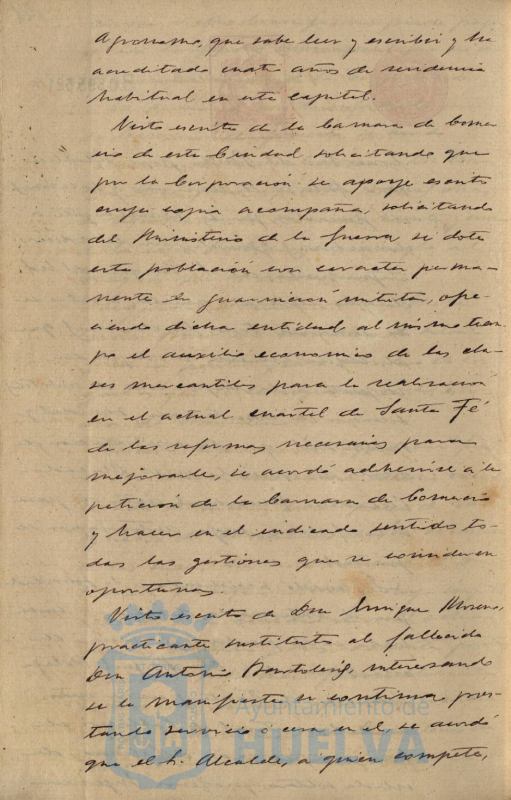 que sabe leer y escribir y ha
acreditado cuatro años de residencia
habitual en esta capital.
Visto escrito de la Camara de Comer-
cio de esta Ciudad solicitando que
por la Corporación se apoye escrito
cuya copia acompaña, solicitando
del Ministerio de la Guerra se dote
esta población con caracter perma-
nente de guarnición militar, ofre-
ciendo dicha entidad al mismo tiem-
po el auxilio economico de las cla-
ses mercantiles para la realización
en el actual cuartel de Santa Fé
de las reformas necesarias para
mejorarle, se acordó adherirse a la
petición de la Camara de Comercio
y hacer en el indicado sentido to-
das las gestiones que se consideren
oportunas.
Visto escrito de Don Enrique Moreno,
practicante sustituto al fallecido
Don Antonio interesando
se le manifieste si continua pres-
tando servicio o cesa en el, se acordó
que el Sr. Alcalde, a quien compete,
Ayuntamiento de
HUELVA